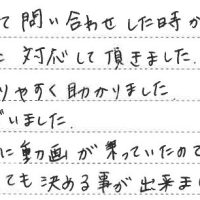 て問い合わせした時か
対応して頂きました.
りやすく助かりました.
ざいました.
に動画が乗っていたので
ても決める事が出来ま